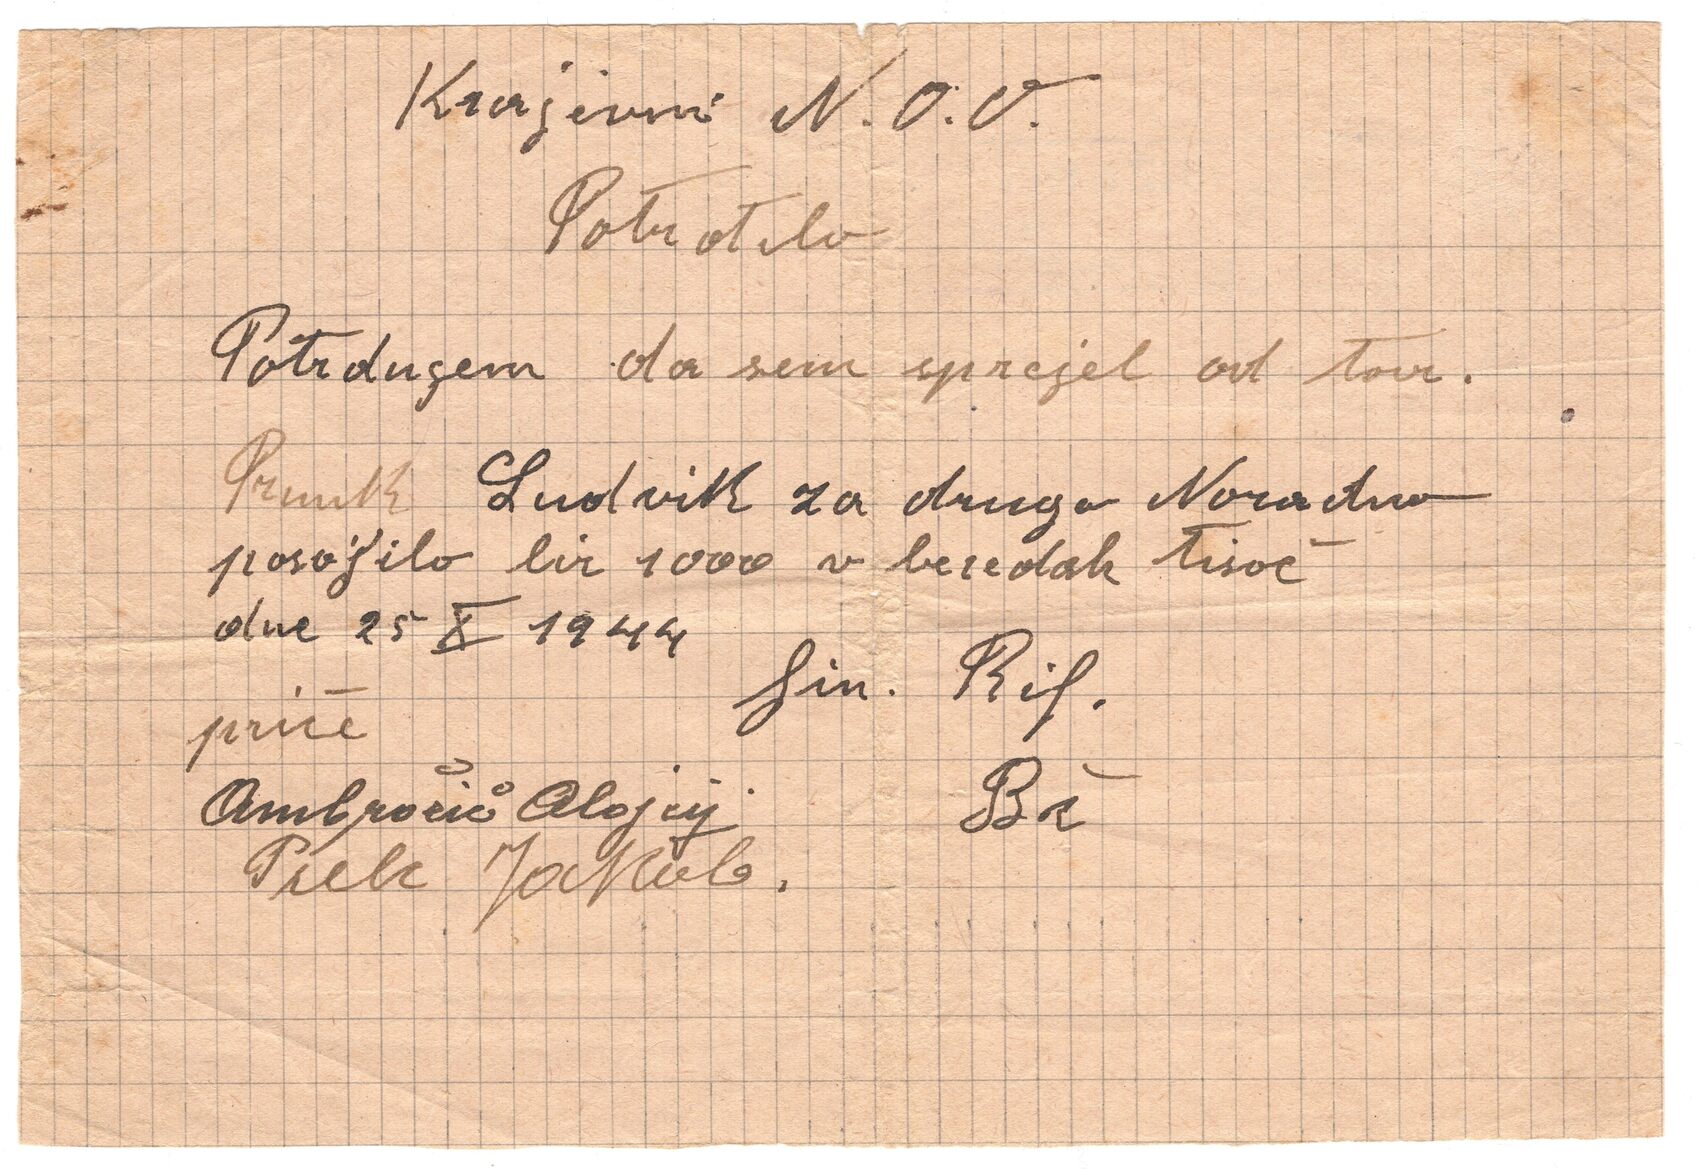 Krajevni N.O.O.
Potrdilo
Potrdujem da sem sprejel od tov.
Prunk Ludvik za drugo Norodno
posojilo lir 1000 v besedah tisoč
dne 25 X 1944
fin. Rif.
priče
Ambrožič Alojzij
Bč
Jakob.